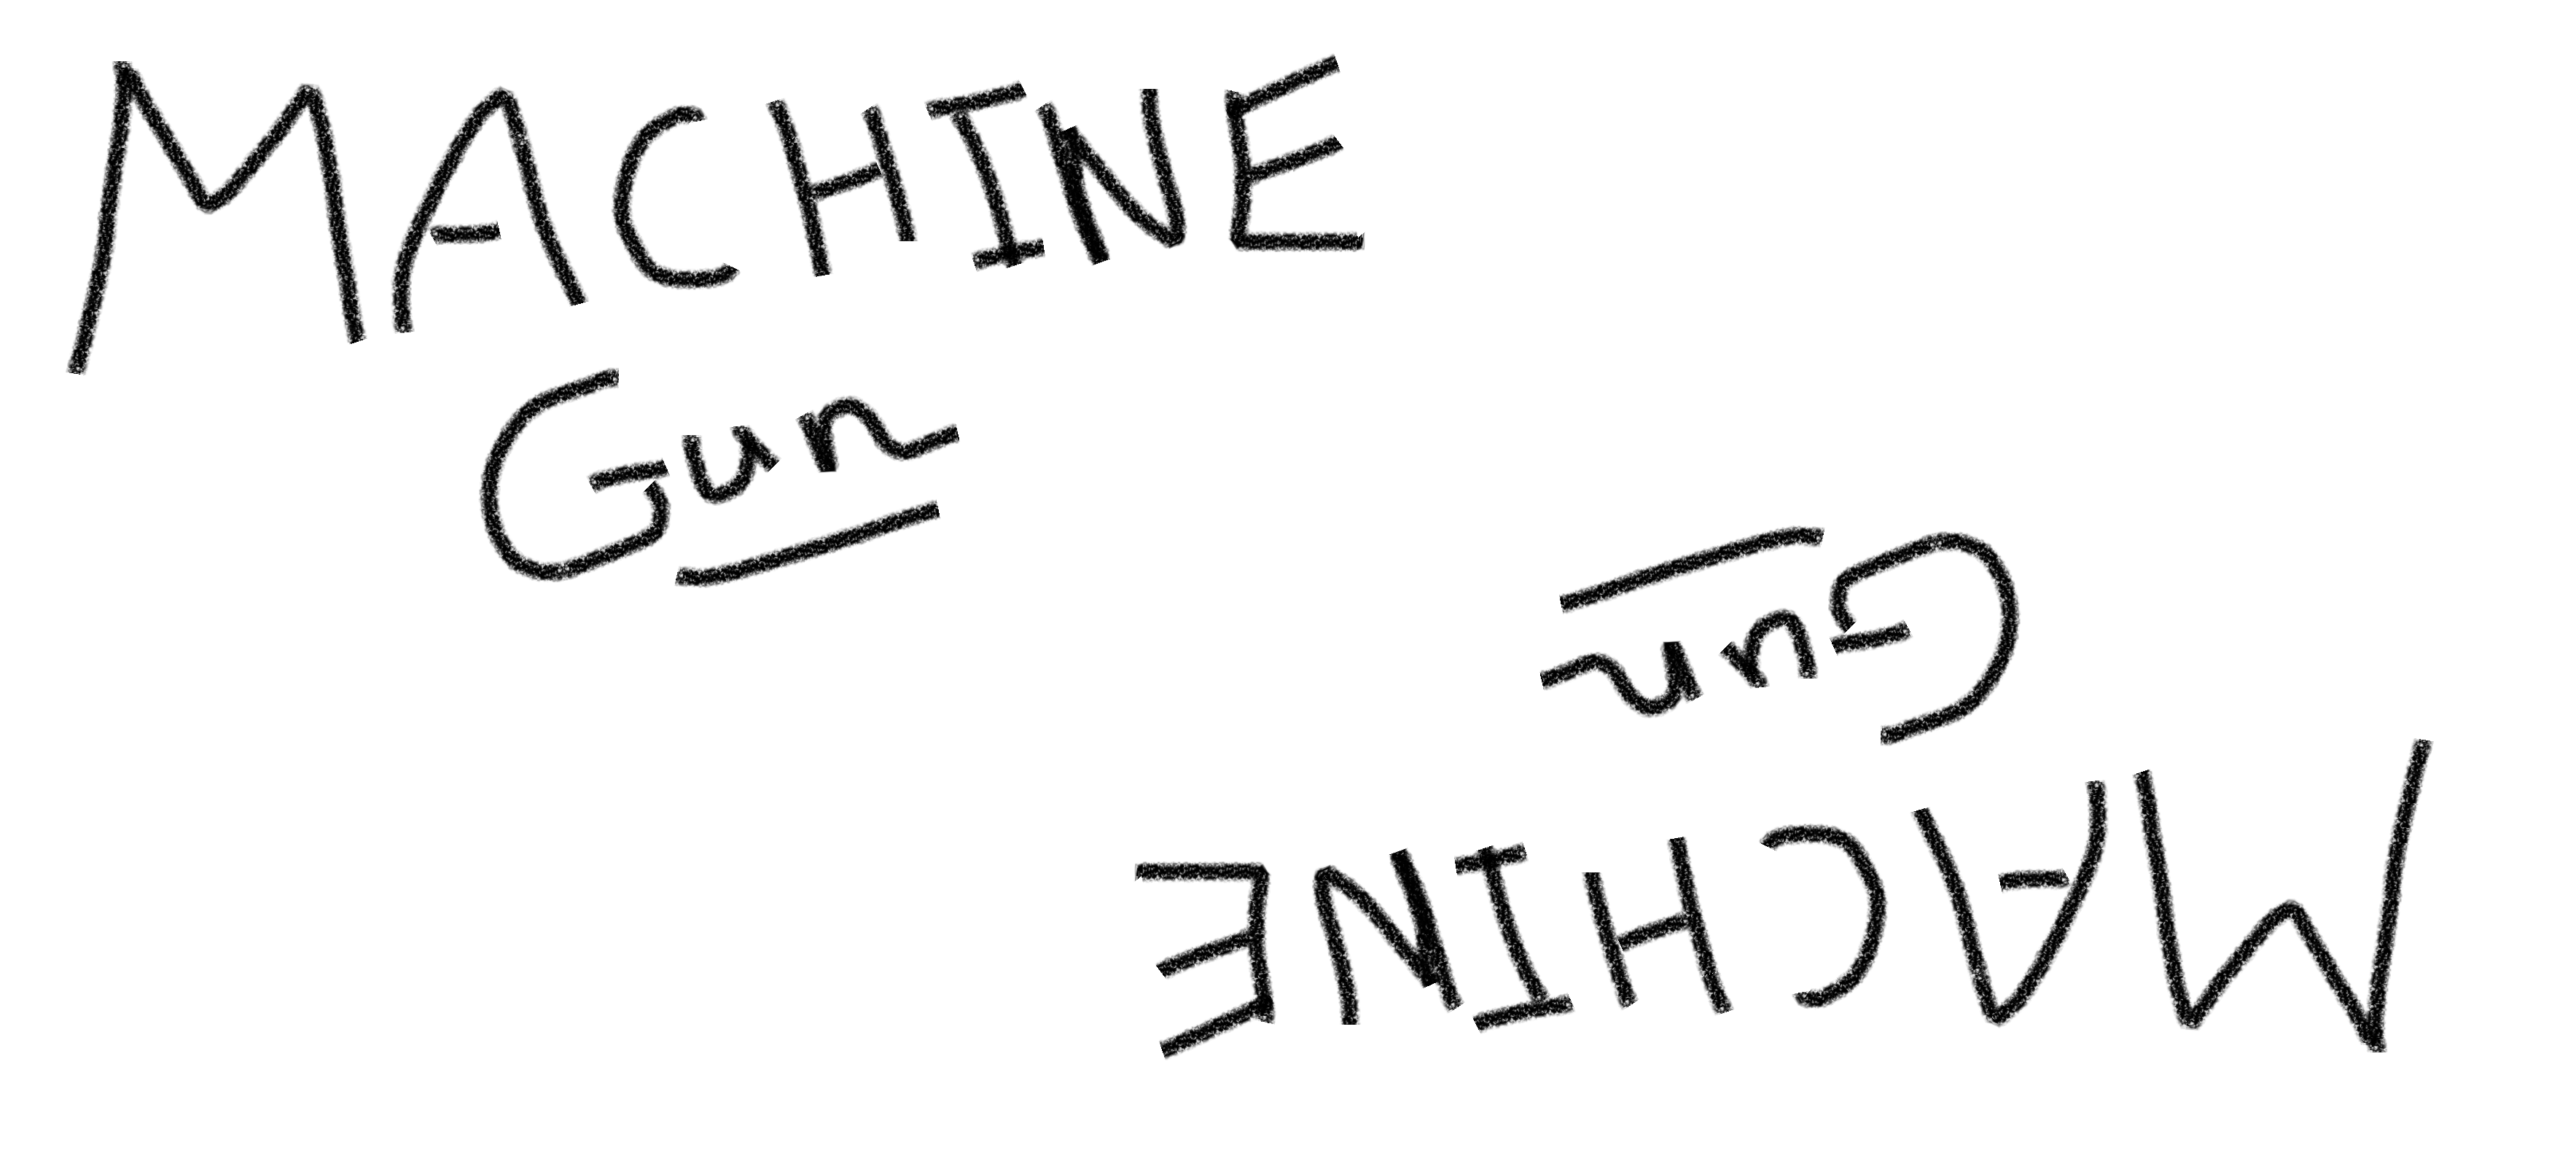 MACHINE
Gun
MACHINE
Gun